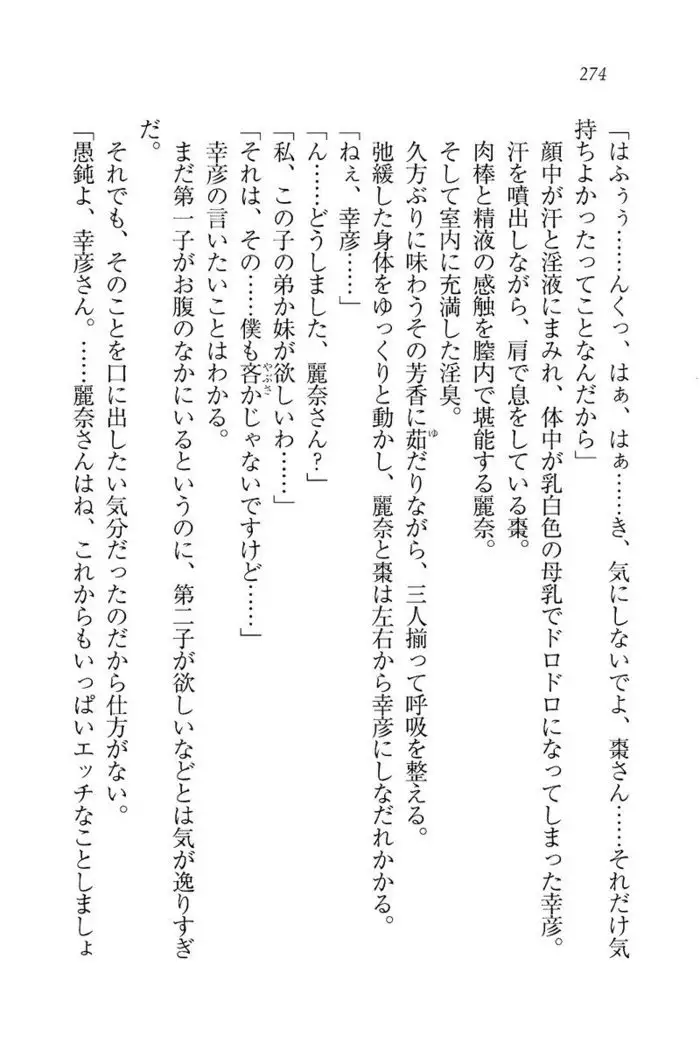 274
「はふぅぅ……んくっ、はぁ、はぁ……き、気にしないでよ、棗さん……それだけ気
持ちよかったってことなんだから」
顔中が汗と淫液にまみれ、体中が乳白色の母乳でドロドロになってしまった幸彦。
汗を噴出しながら、肩で息をしている棗。
肉棒と精液の感触を膣内で堪能する麗奈。
そして室内に充満した淫臭。
久方ぶりに味わうその芳香に茹だりながら、三人揃って呼吸を整える。
弛緩した身体をゆっくりと動かし、麗奈と棗は左右から幸彦にしなだれかかる。
「ねぇ、幸彦……」
「ん……どうしました、麗奈さん?」
「私、この子の弟か妹が欲しいわ……」
「それは、その……僕も吝かじゃないですけど……」
幸彦の言いたいことはわかる。
まだ第一子がお腹のなかにいるというのに、第二子が欲しいなどとは気が逸りすぎ
だ。
それでも、そのことを口に出したい気分だったのだから仕方がない。
「愚鈍よ、幸彦さん。……麗奈さんはね、これからもいっぱいエッチなことしましょ